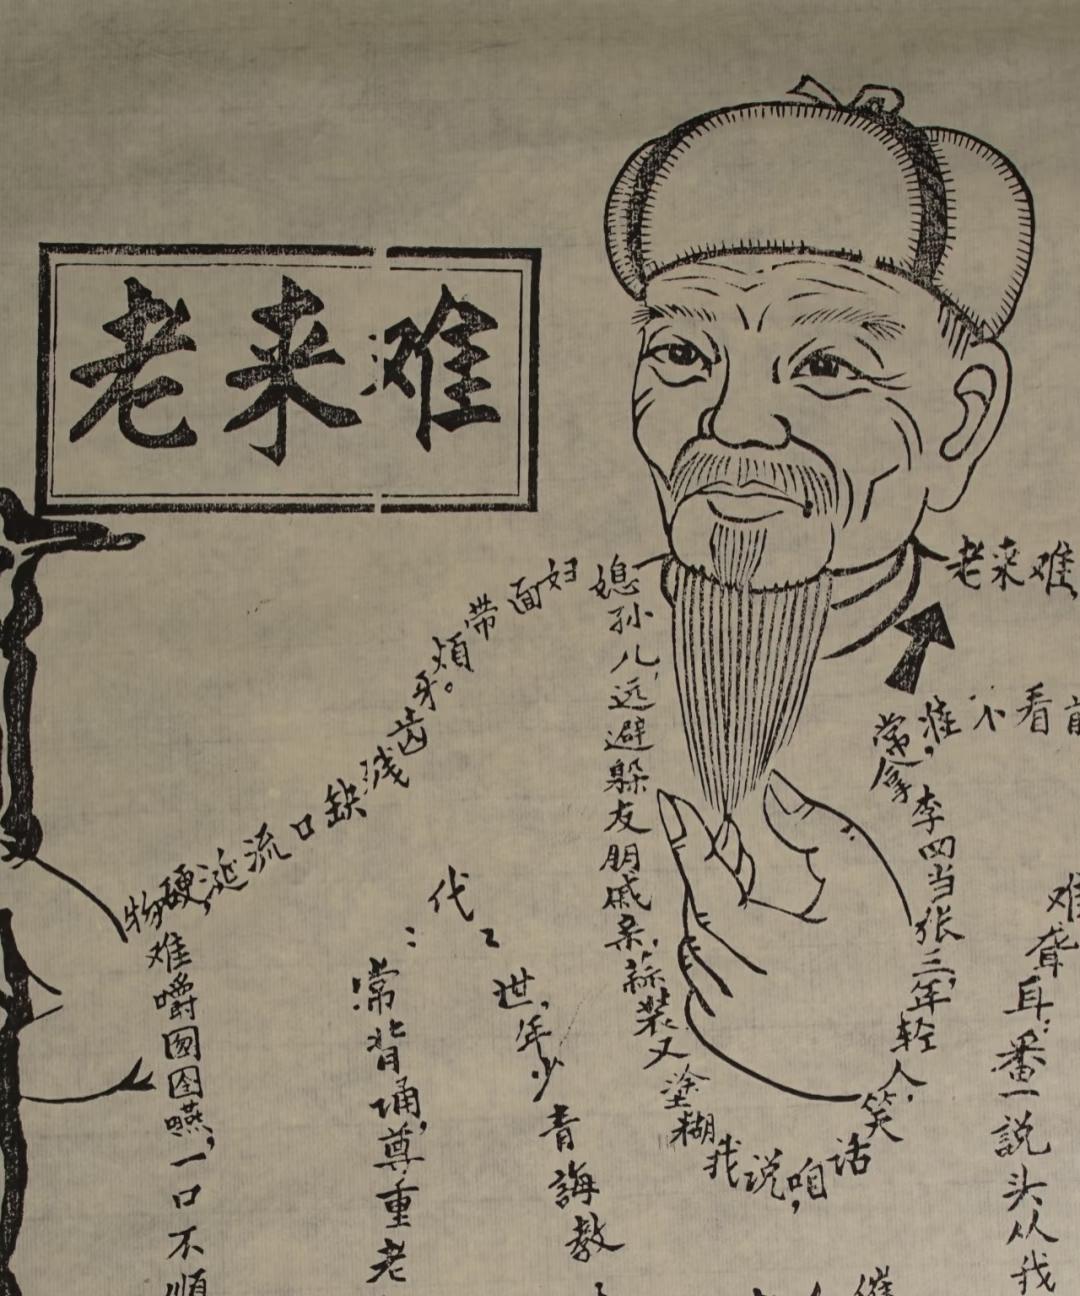 老来难
老来难,
我从头説一番:耳聋难
前看不准,常拿李四当张三,年轻人,笑话咱,说我糊塗又装蒜,亲戚朋友躲避远,儿孙媳妇面带烦。牙齿残缺口流涎,硬物难嚼囫囵嚥,一口不順
教誨青少年,世〻代:常背诵,尊重老